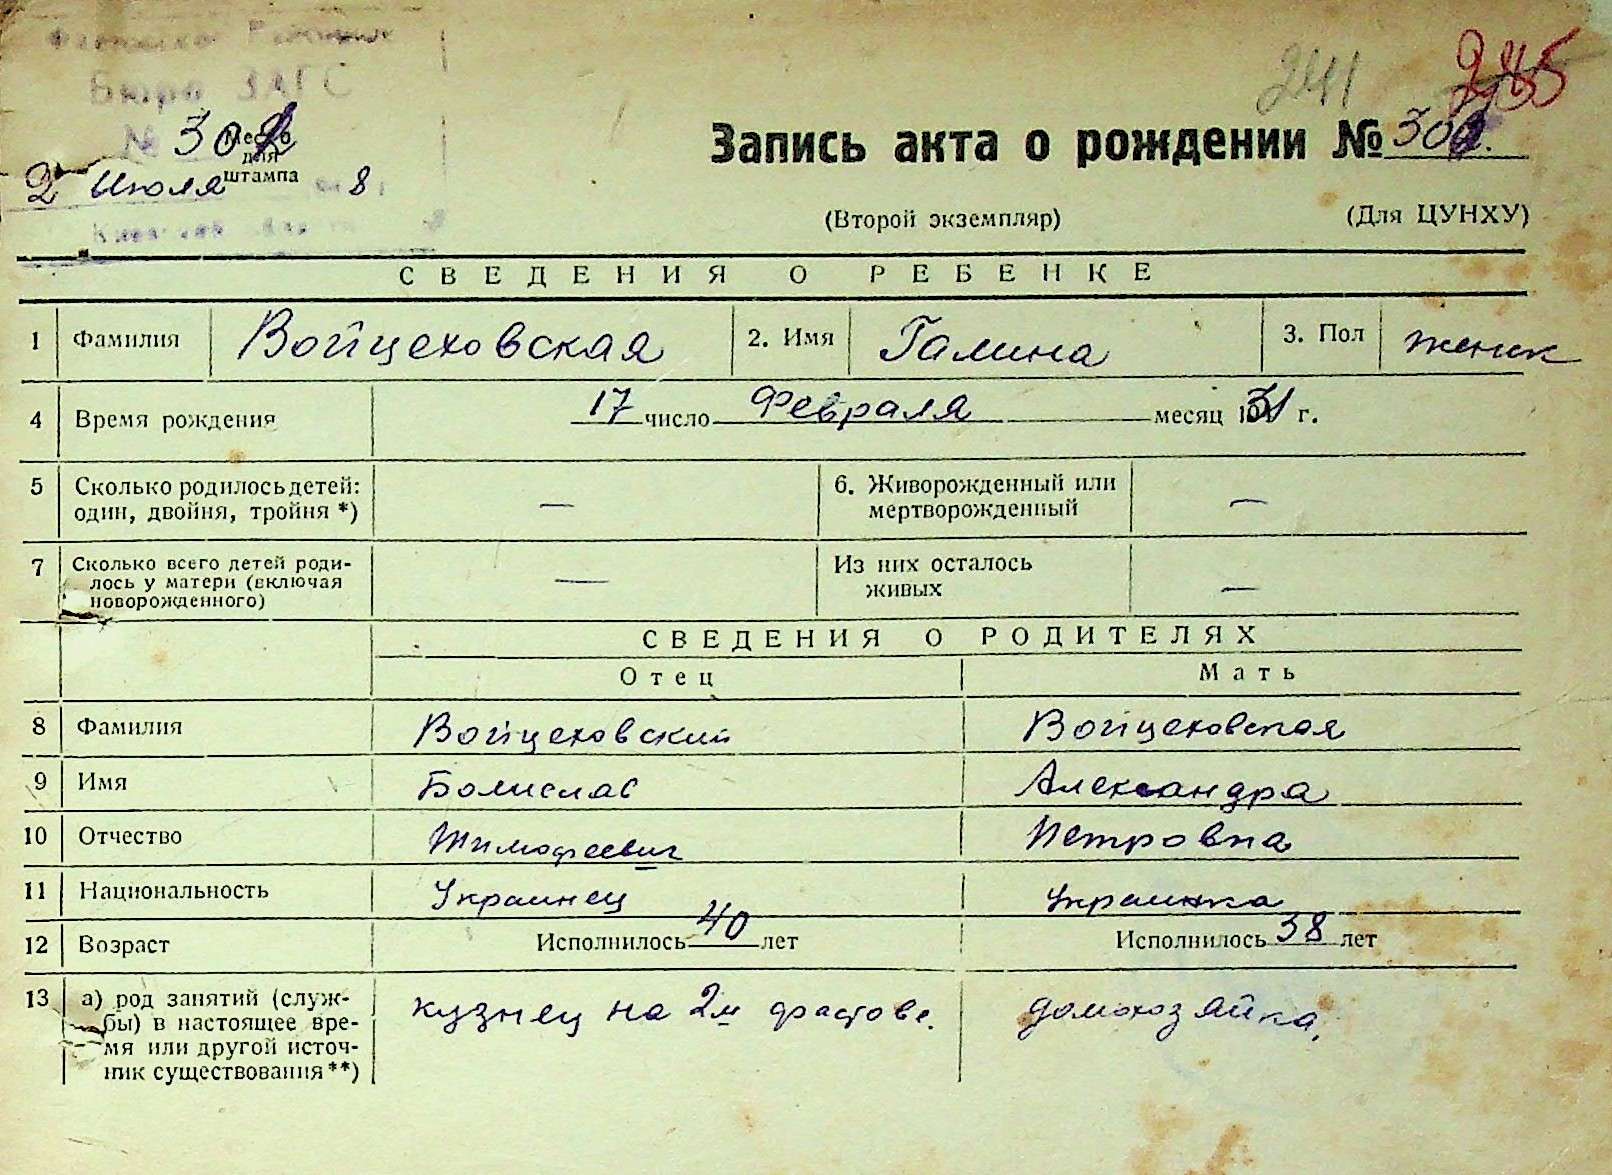 Бюро ЗАГС
241 285
№ 302
Место для штампа
2 Июля 8
Запись акта о рождении № 302.
(Второй экземпляр) (Для ЦУНХУ)
СВЕДЕНИЯ О РЕБЕНКЕ
1 Фамилия Войцеховская 2. Имя Галина 3. Пол женск
4 Время рождения 17 число Февраля месяц 1931 г.
5 Сколько родилось детей: — 6. Живорожденный или —
один, двойня, тройня *) мертворожденный
7 Сколько всего детей роди- — Из них осталось —
лось у матери (включая живых
новорожденного)
СВЕДЕНИЯ О РОДИТЕЛЯХ
Отец Мать
8 Фамилия Войцеховский Войцеховская
9 Имя Болислав Александра
10 Отчество Тимофеевич Петровна
11 Национальность Украинец Украинка
12 Возраст Исполнилось 40 лет Исполнилось 38 лет
13 а) род занятий (служ- кузнец на 2м фастове. домохозяйка.
бы) в настоящее вре-
мя или другой источ-
ник существования **)